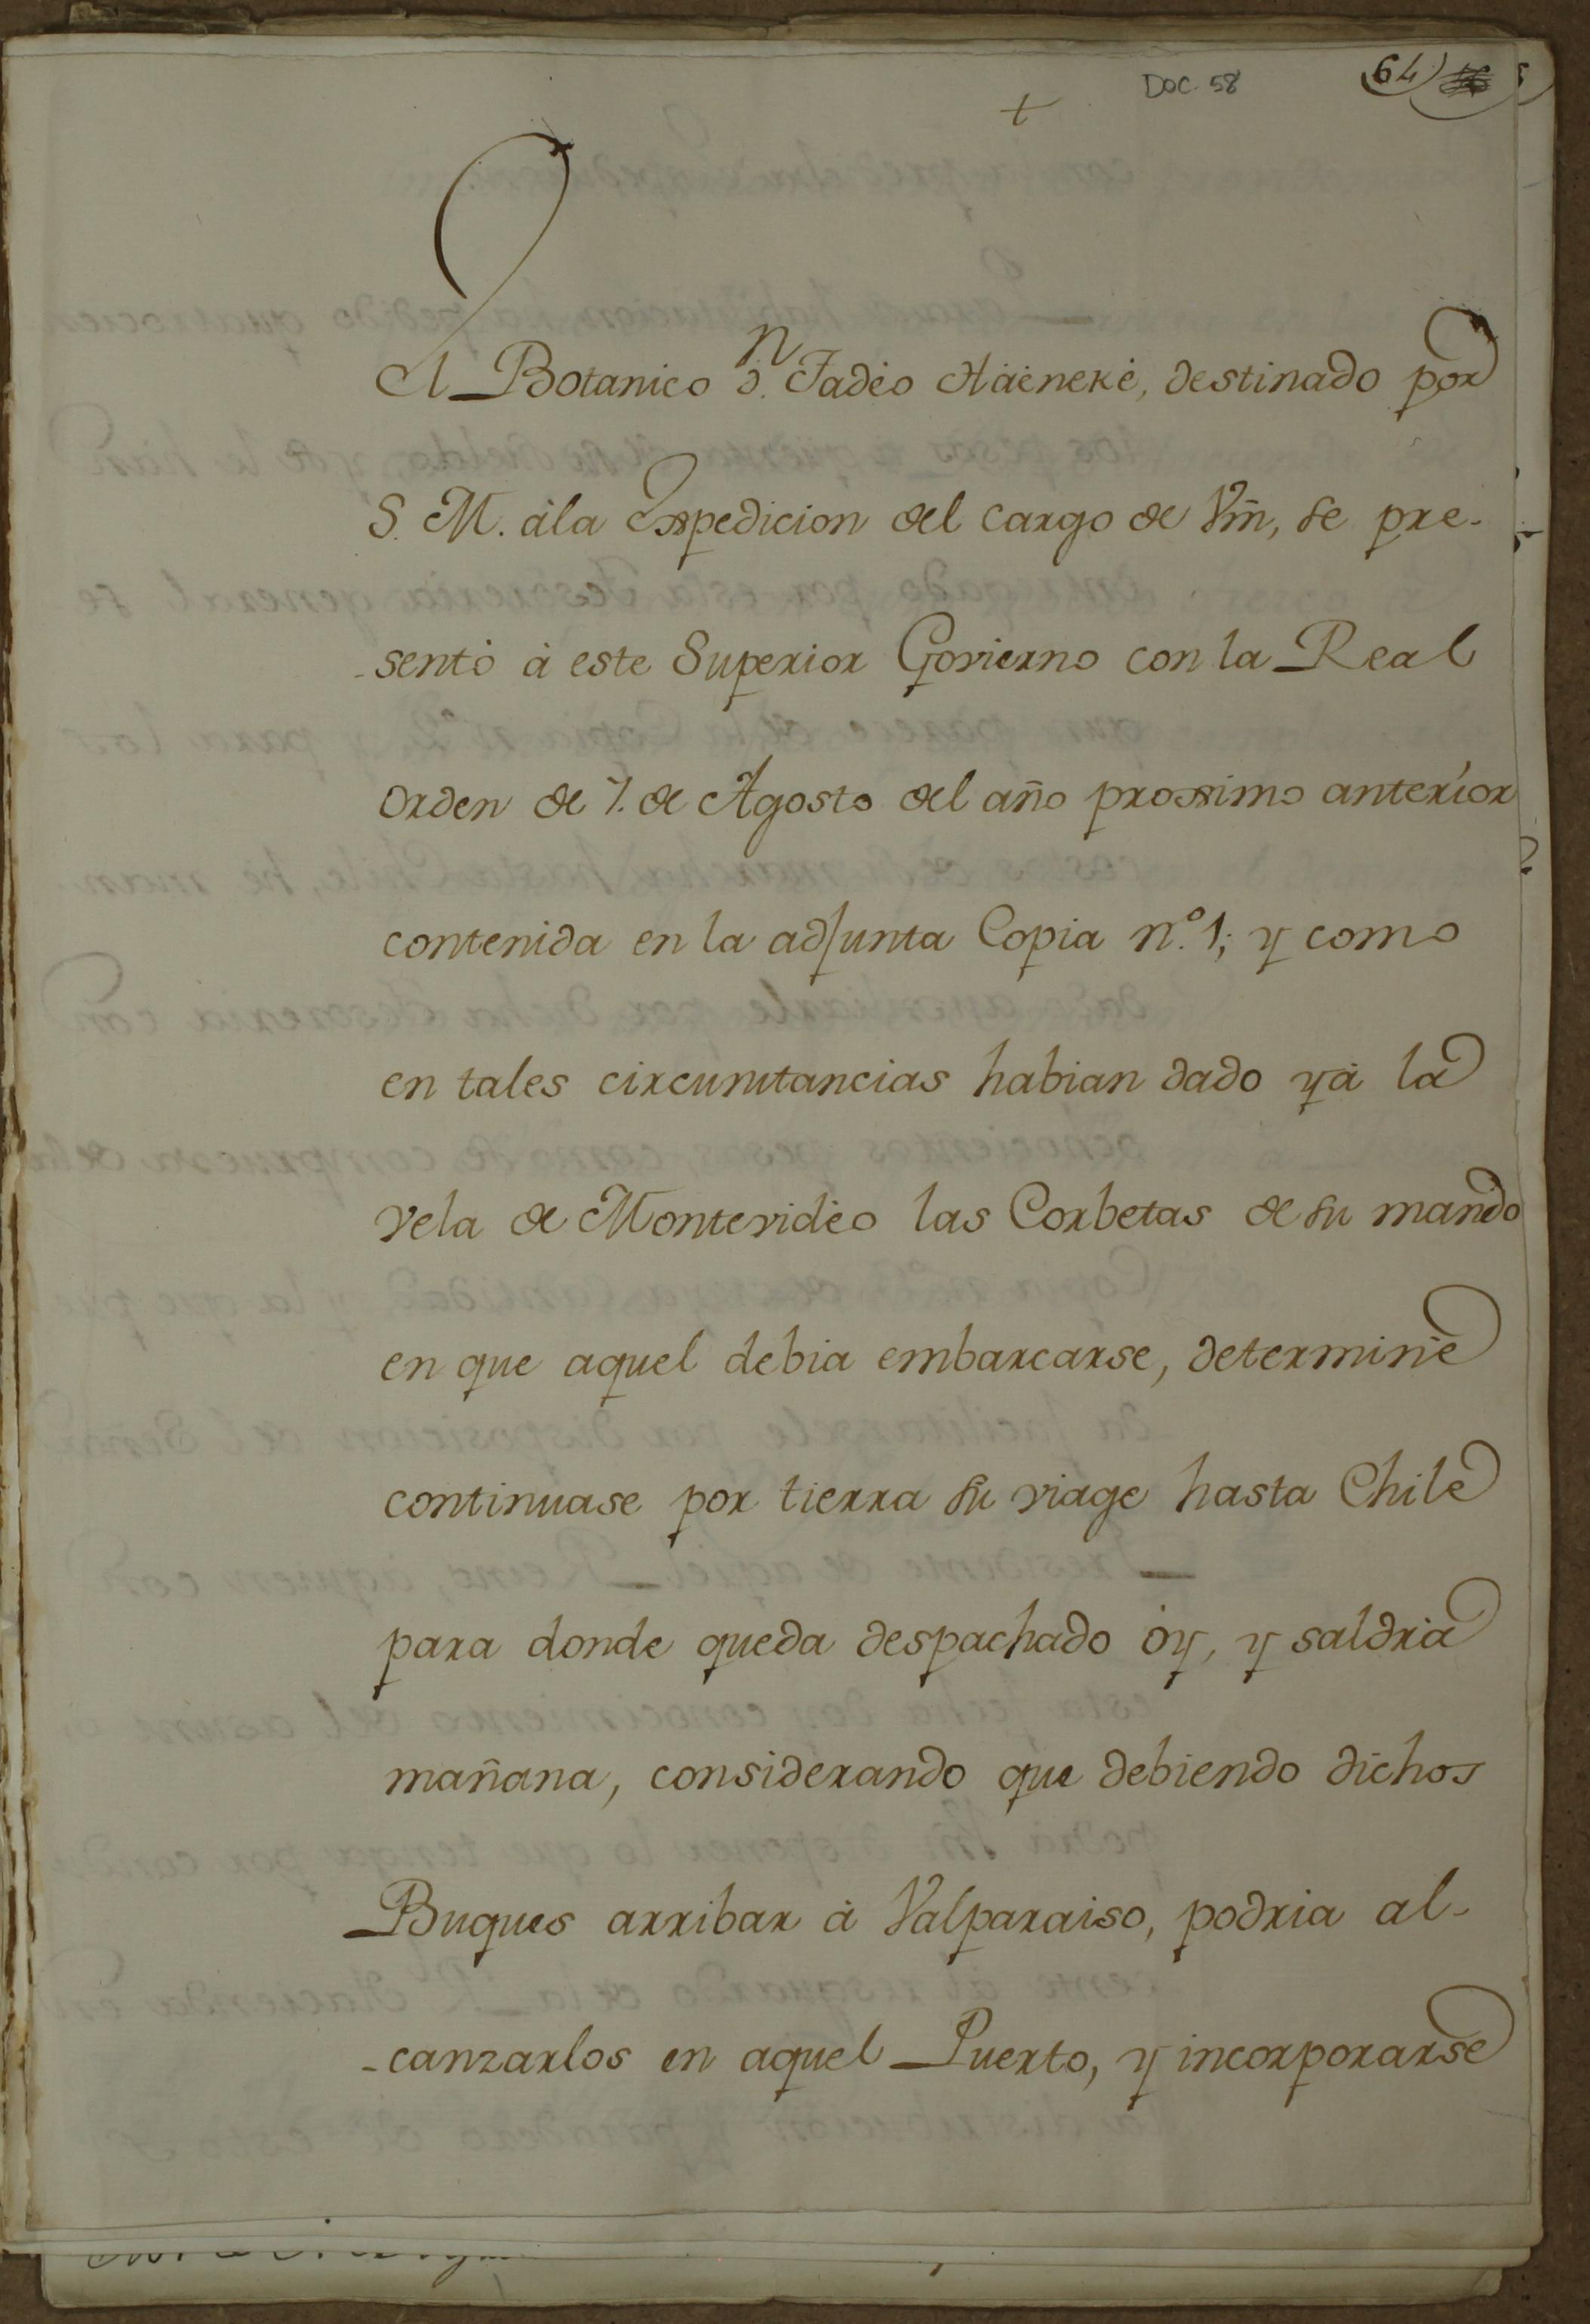 DOC. 58
64
+
El Botanico D.n Tadèo Häènekè, destinado por
S. M. àla Expedicion del cargo de Vm̃, se pre-
-sentò à este Superior Govierno con la Real
Orden de 1. de Agosto del año proximo anterior
contenida en la adjunta Copia n.º 1; y como
en tales circunstancias habian dado yà la
vela de Montevidèo las Corbetas de su mando
en que aquel debia embarcarse, determinè
continuase por tierra su viage hasta Chile
para donde queda despachado òy, y saldrà
mañana, considerando que debiendo dichos
Buques arribar à Valparaiso, podria al-
-canzarlos en aquel Puerto, y incorporarse